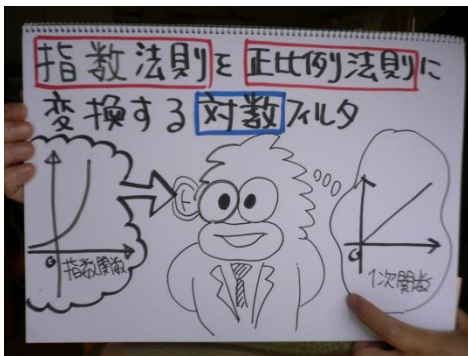 指数法則を正比例法則に
変換する対数フィルタ
指数関数
1次関数